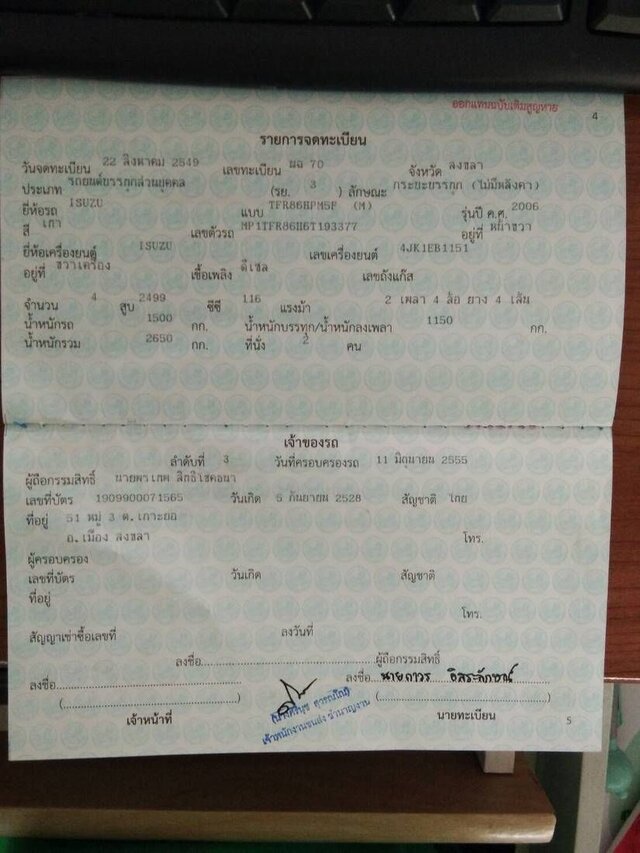 ออกแทนฉบับเดิมสูญหาย
4
รายการจดทะเบียน
วันจดทะเบียน 22 สิงหาคม 2549 เลขทะเบียน ผฉ 70 จังหวัด สงขลา
ประเภท รถยนต์บรรทุกส่วนบุคคล (รย. 3 ) ลักษณะ กระบะบรรทุก (ไม่มีหลังคา)
ยี่ห้อรถ ISUZU แบบ TFR86HPM5F (M) รุ่นปี ค.ศ. 2006
สี เทา เลขตัวรถ MP1TFR86H6T193377 อยู่ที่ หน้าขวา
ยี่ห้อเครื่องยนต์ ISUZU เลขเครื่องยนต์ 4JK1EB1151
อยู่ที่ ขวาเครื่อง เชื้อเพลิง ดีเซล เลขถังแก๊ส
จำนวน 4 สูบ 2499 ซีซี 116 แรงม้า 2 เพลา 4 ล้อ ยาง 4 เส้น
น้ำหนักรถ 1500 กก. น้ำหนักบรรทุก/น้ำหนักลงเพลา 1150 กก.
น้ำหนักรวม 2650 กก. ที่นั่ง 2 คน
เจ้าของรถ
ลำดับที่ 3 วันที่ครอบครองรถ 11 มิถุนายน 2555
ผู้ถือกรรมสิทธิ์ นายพรเทพ สิทธิโชคธนา
เลขที่บัตร 1909900071565 วันเกิด 5 กันยายน 2528 สัญชาติ ไทย
ที่อยู่ 51 หมู่ 3 ต.เกาะยอ
อ.เมือง สงขลา โทร.
ผู้ครอบครอง
เลขที่บัตร วันเกิด สัญชาติ
ที่อยู่
โทร.
สัญญาเช่าซื้อเลขที่ ลงวันที่
ลงชื่อ ผู้ถือกรรมสิทธิ์
ลงชื่อ ลงชื่อ นายถาวร อิสระลักษณ์
( ) ( )
เจ้าหน้าที่ เจ้าพนักงานขนส่ง ชำนาญงาน นายทะเบียน 5